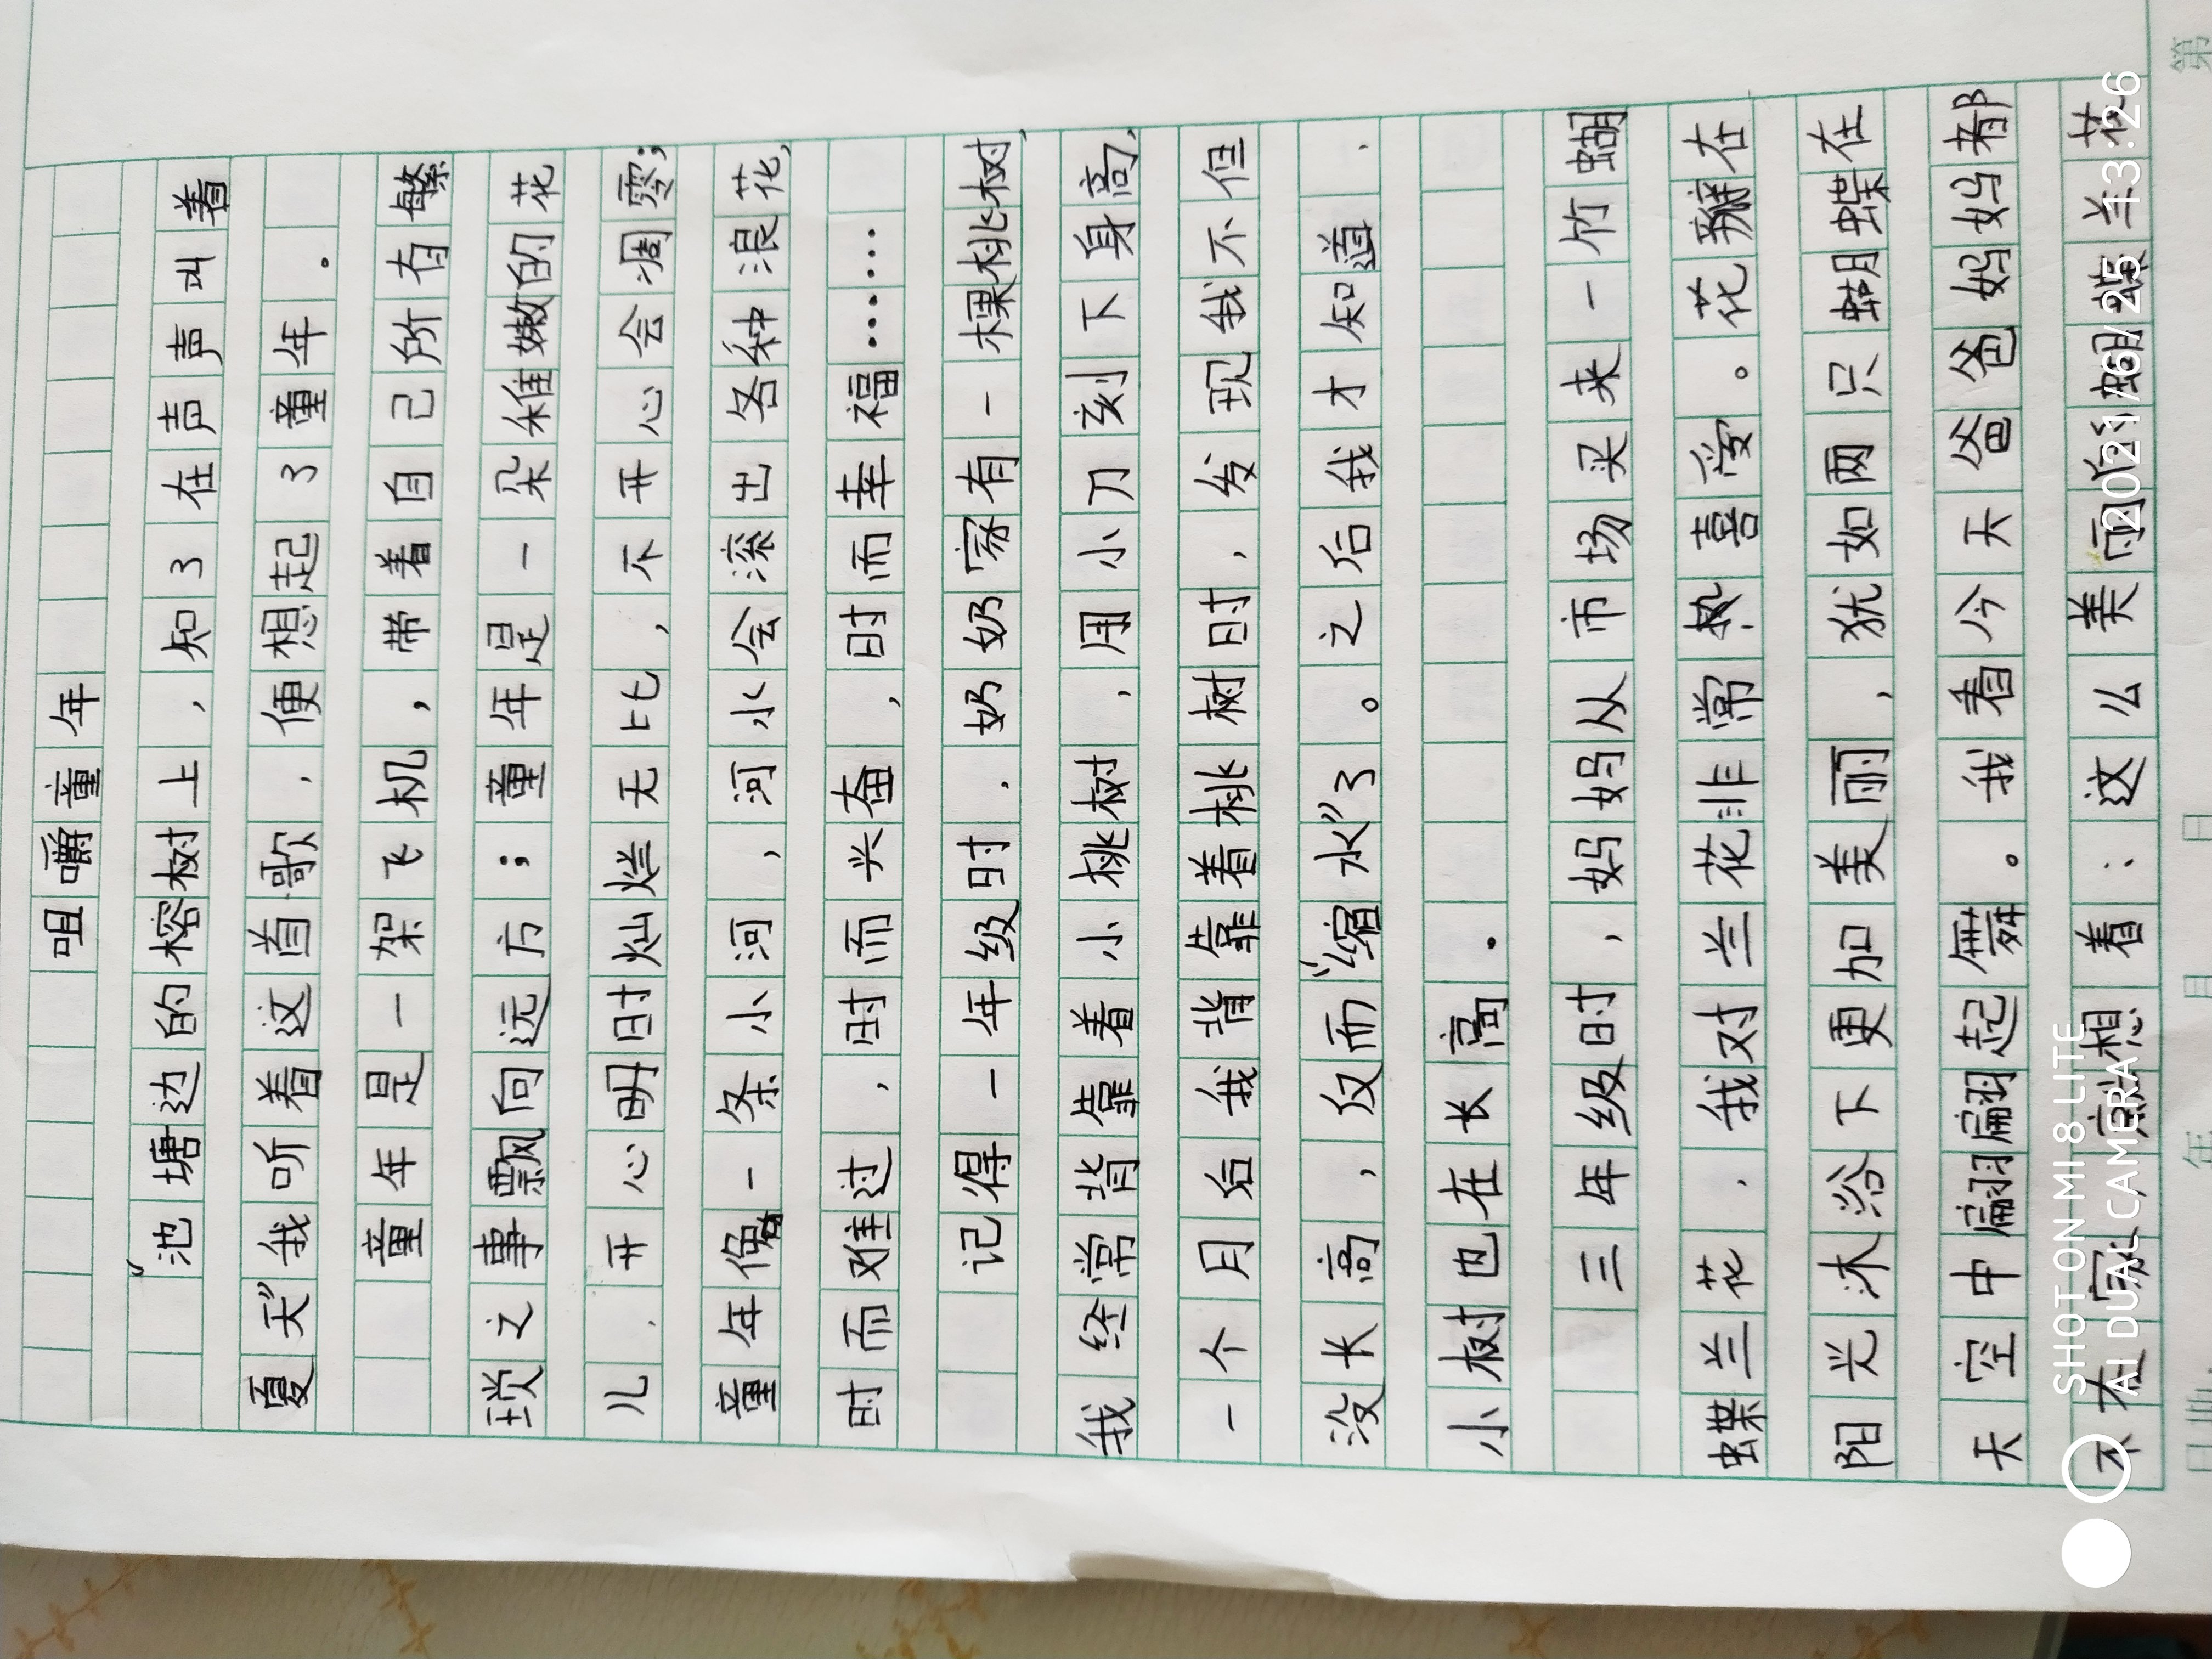 咀嚼童年
“池塘边的榕树上，知了在声声叫着
夏天”我听着这首歌，便想起了童年。
童年是一架飞机，带着自己所有繁
琐之事飘向远方；童年是一朵稚嫩的花
儿，开心明时灿烂无比，不开心会凋零；
童年像一条小河，河水会滚出各种浪花，
时而难过，时而兴奋，时而幸福……
记得一年级时，奶奶家有一棵桃树，
我经常背靠着小桃树，用小刀刻下身高，
一个月后我背靠着桃树时，发现我不但
没长高，反而“缩水”了。之后我才知道，
小树也在长高。
三年级时，妈妈从市场买来一竹蝴
蝶兰花，我对兰花非常热喜爱。花瓣在
阳光沐浴下更加美丽，犹如两只蝴蝶在
天空中翩翩起舞。我看今天爸爸妈妈都
不在家，想着：这么美丽的蝴蝶兰花
SHOT ON MI 8 LITE
AI DUAL CAMERA
2021/6/25 13:26
年 月 日
第